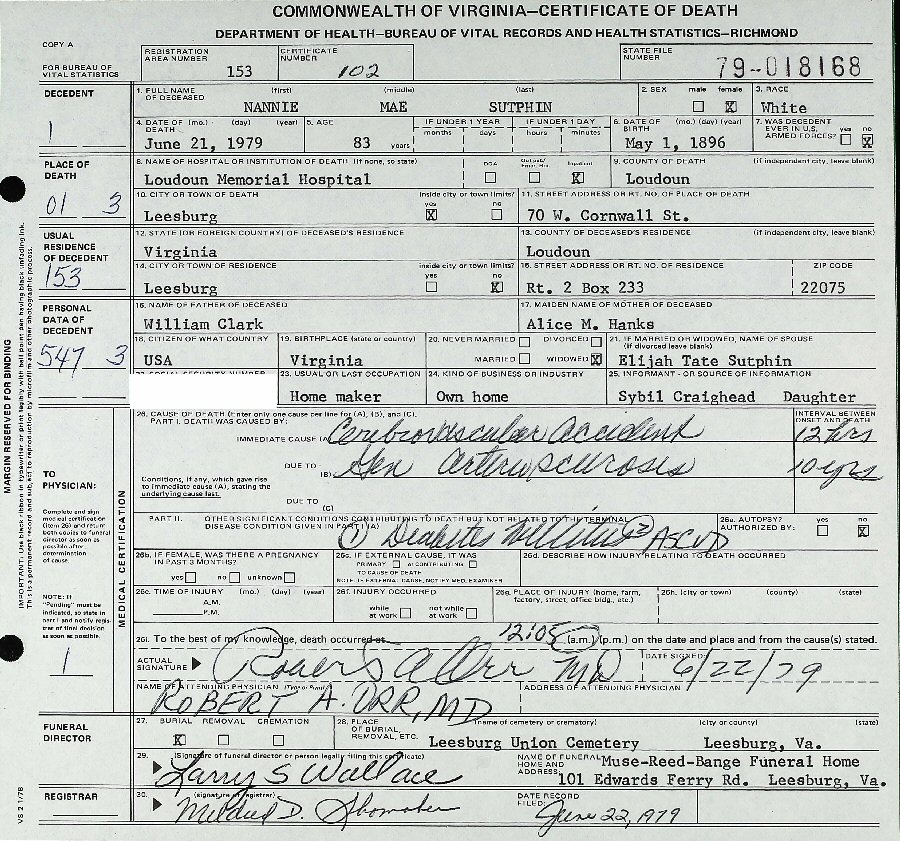 COMMONWEALTH OF VIRGINIA—CERTIFICATE OF DEATH
DEPARTMENT OF HEALTH—BUREAU OF VITAL RECORDS AND HEALTH STATISTICS—RICHMOND
COPY A
FOR BUREAU OF VITAL STATISTICS
REGISTRATION AREA NUMBER 153
CERTIFICATE NUMBER 102
STATE FILE NUMBER 79-018168
DECEDENT
1
1. FULL NAME OF DECEASED (first) (middle) (last)
NANNIE MAE SUTPHIN
2. SEX male female X
3. RACE White
4. DATE OF DEATH (mo.) (day) (year) June 21, 1979
5. AGE 83 years
IF UNDER 1 YEAR months days
IF UNDER 1 DAY hours minutes
6. DATE OF BIRTH (mo.) (day) (year) May 1, 1896
7. WAS DECEDENT EVER IN U.S. ARMED FORCES? yes no X
PLACE OF DEATH
01 3
8. NAME OF HOSPITAL OR INSTITUTION OF DEATH (If none, so state)
Loudoun Memorial Hospital
DOA Inpatient X
9. COUNTY OF DEATH (if independent city, leave blank)
Loudoun
10. CITY OR TOWN OF DEATH inside city or town limits? yes X no
Leesburg
11. STREET ADDRESS OR RT. NO. OF PLACE OF DEATH
70 W. Cornwall St.
USUAL RESIDENCE OF DECEDENT
153
12. STATE (OR FOREIGN COUNTRY) OF DECEASED'S RESIDENCE
Virginia
13. COUNTY OF DECEASED'S RESIDENCE (if independent city, leave blank)
Loudoun
14. CITY OR TOWN OF RESIDENCE inside city or town limits? yes no X
Leesburg
15. STREET ADDRESS OR RT. NO. OF RESIDENCE ZIP CODE
Rt. 2 Box 233 22075
PERSONAL DATA OF DECEDENT
547 3
16. NAME OF FATHER OF DECEASED
William Clark
17. MAIDEN NAME OF MOTHER OF DECEASED
Alice M. Hanks
18. CITIZEN OF WHAT COUNTRY
USA
19. BIRTHPLACE (state or country)
Virginia
20. NEVER MARRIED DIVORCED
MARRIED WIDOWED X
21. IF MARRIED OR WIDOWED, NAME OF SPOUSE (If divorced leave blank)
Elijah Tate Sutphin
23. USUAL OR LAST OCCUPATION
Home maker
24. KIND OF BUSINESS OR INDUSTRY
Own home
25. INFORMANT - OR SOURCE OF INFORMATION
Sybil Craighead Daughter
MARGIN RESERVED FOR BINDING
IMPORTANT: Use black ribbon in typewriter or print legibly with ball point pen having black unfading ink.
This is a permanent record and subject to reproduction by microfilm and other photographic process.
TO PHYSICIAN:
Complete and sign medical certification (item 26) and return both copies to funeral director as soon as possible after determination of cause.
NOTE: If "Pending" must be indicated, so state in part I and notify registrar of final decision as soon as possible.
1
MEDICAL CERTIFICATION
26. CAUSE OF DEATH (Enter only one cause per line for (A), (B), and (C).
PART I. DEATH WAS CAUSED BY:
INTERVAL BETWEEN ONSET AND DEATH
IMMEDIATE CAUSE (A) Cerebrovascular Accident 12 hrs
DUE TO (B) Gen Arteriosclerosis 10 yrs
Conditions, if any, which gave rise to immediate cause (A), stating the underlying cause last.
DUE TO (C)
PART II. OTHER SIGNIFICANT CONDITIONS CONTRIBUTING TO DEATH BUT NOT RELATED TO THE TERMINAL DISEASE CONDITION GIVEN IN PART I (A)
① Diabetes Mellitus ② ASCVD
26a. AUTOPSY? AUTHORIZED BY: yes no X
26b. IF FEMALE, WAS THERE A PREGNANCY IN PAST 3 MONTHS?
yes no unknown
26c. IF EXTERNAL CAUSE, IT WAS
PRIMARY or CONTRIBUTING
TO CAUSE OF DEATH
NOTE: IF EXTERNAL CAUSE, NOTIFY MED. EXAMINER
26d. DESCRIBE HOW INJURY RELATING TO DEATH OCCURRED
26e. TIME OF INJURY (mo.) (day) (year)
A.M.
P.M.
26f. INJURY OCCURRED
while at work not while at work
26g. PLACE OF INJURY (home, farm, factory, street, office bldg., etc.)
26h. (city or town) (county) (state)
26i. To the best of my knowledge, death occurred at 12:05 (a.m.) (p.m.) on the date and place and from the cause(s) stated.
ACTUAL SIGNATURE Robert A Orr MD
DATE SIGNED: 6/22/79
NAME OF ATTENDING PHYSICIAN (Type or Print)
ROBERT A. ORR, MD
ADDRESS OF ATTENDING PHYSICIAN
FUNERAL DIRECTOR
27. BURIAL REMOVAL CREMATION
X
28. PLACE OF BURIAL, REMOVAL, ETC. (name of cemetery or crematory) (city or county) (state)
Leesburg Union Cemetery Leesburg, Va.
29. (Signature of funeral director or person legally filing this certificate)
Larry S Wallace
NAME OF FUNERAL HOME AND ADDRESS:
Muse-Reed-Bange Funeral Home
101 Edwards Ferry Rd. Leesburg, Va.
REGISTRAR
30. (signature of registrar)
Mildred D. Shomaker
DATE RECORD FILED: June 22, 1979
VS 2 1/78